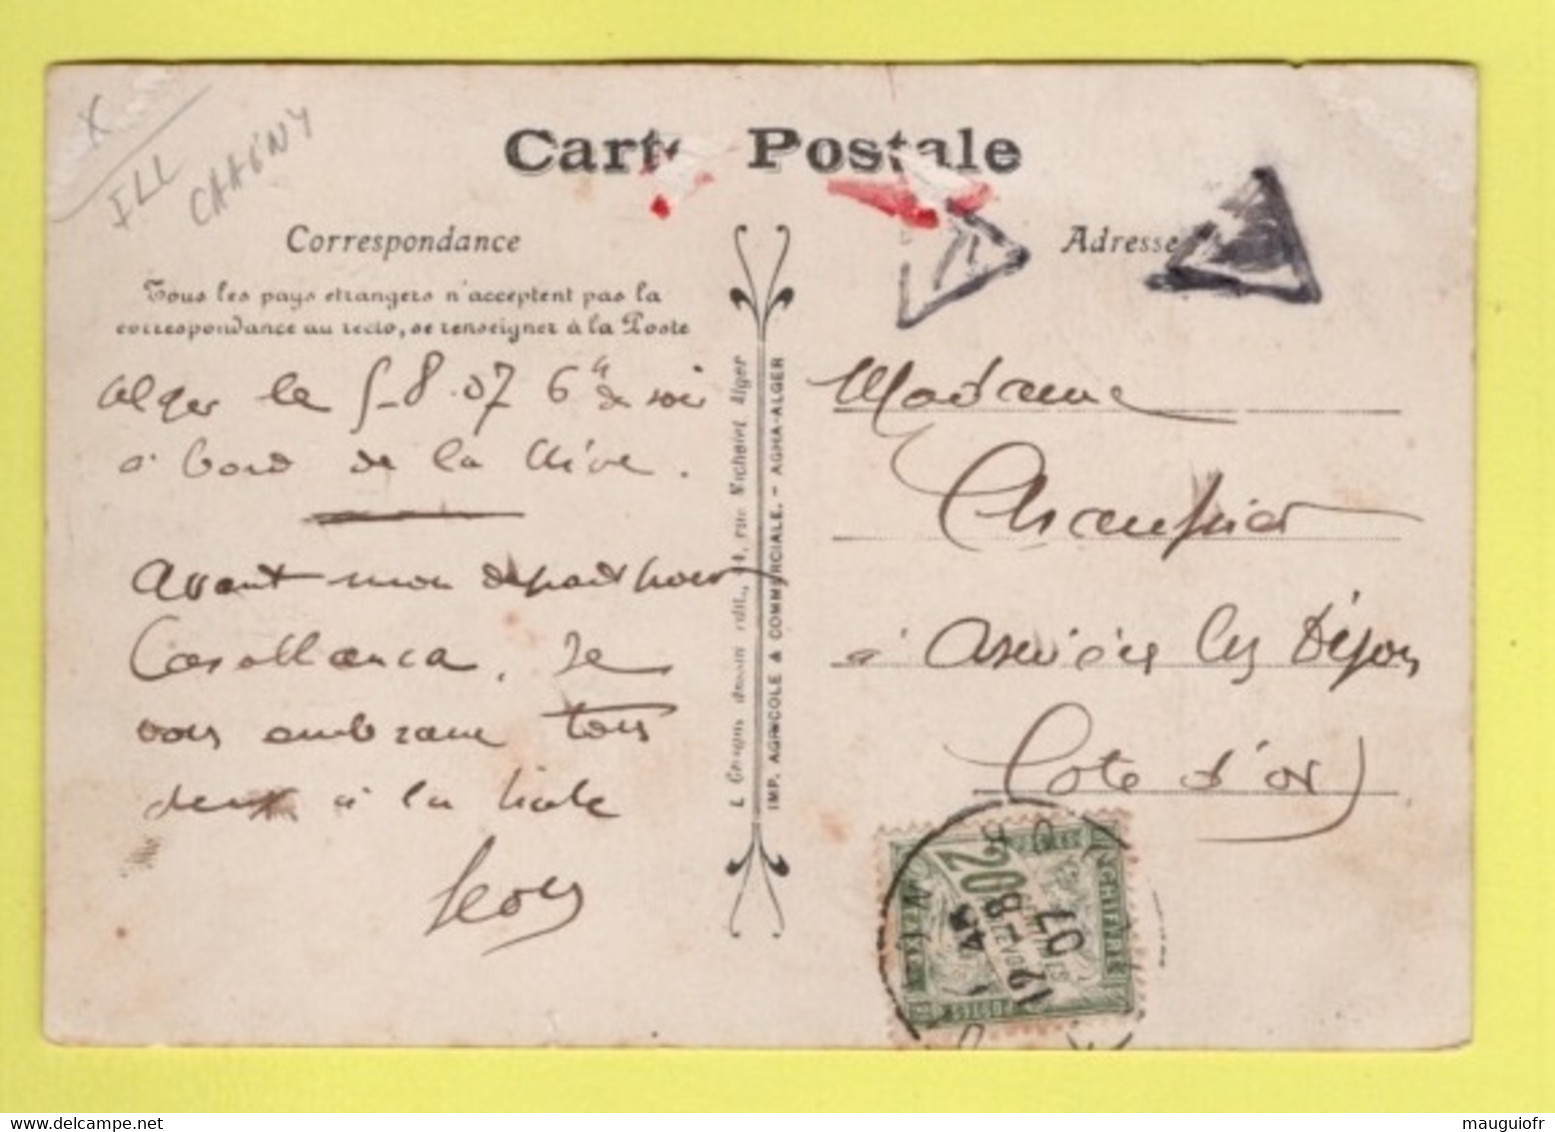 X
ILL
CHAGNY
Carte Postale
Correspondance
Adresse
Tous les pays etrangers n'acceptent pas la
correspondance au recto, se renseigner à la Poste
Alger le 5-8-07 6h du soir
à bord de la Nive.
Avant mon départ pour
Casablanca. Je
vous embrasse tous
deux à la hâte
Léon
édit., rue Michelet Alger
IMP. AGRICOLE & COMMERCIALE. - AGHA-ALGER
Madame
à Asnières les Dijon
Côte d'or
20
POSTES
CHIFFRE
45
12 - 8
07
mauguiofr